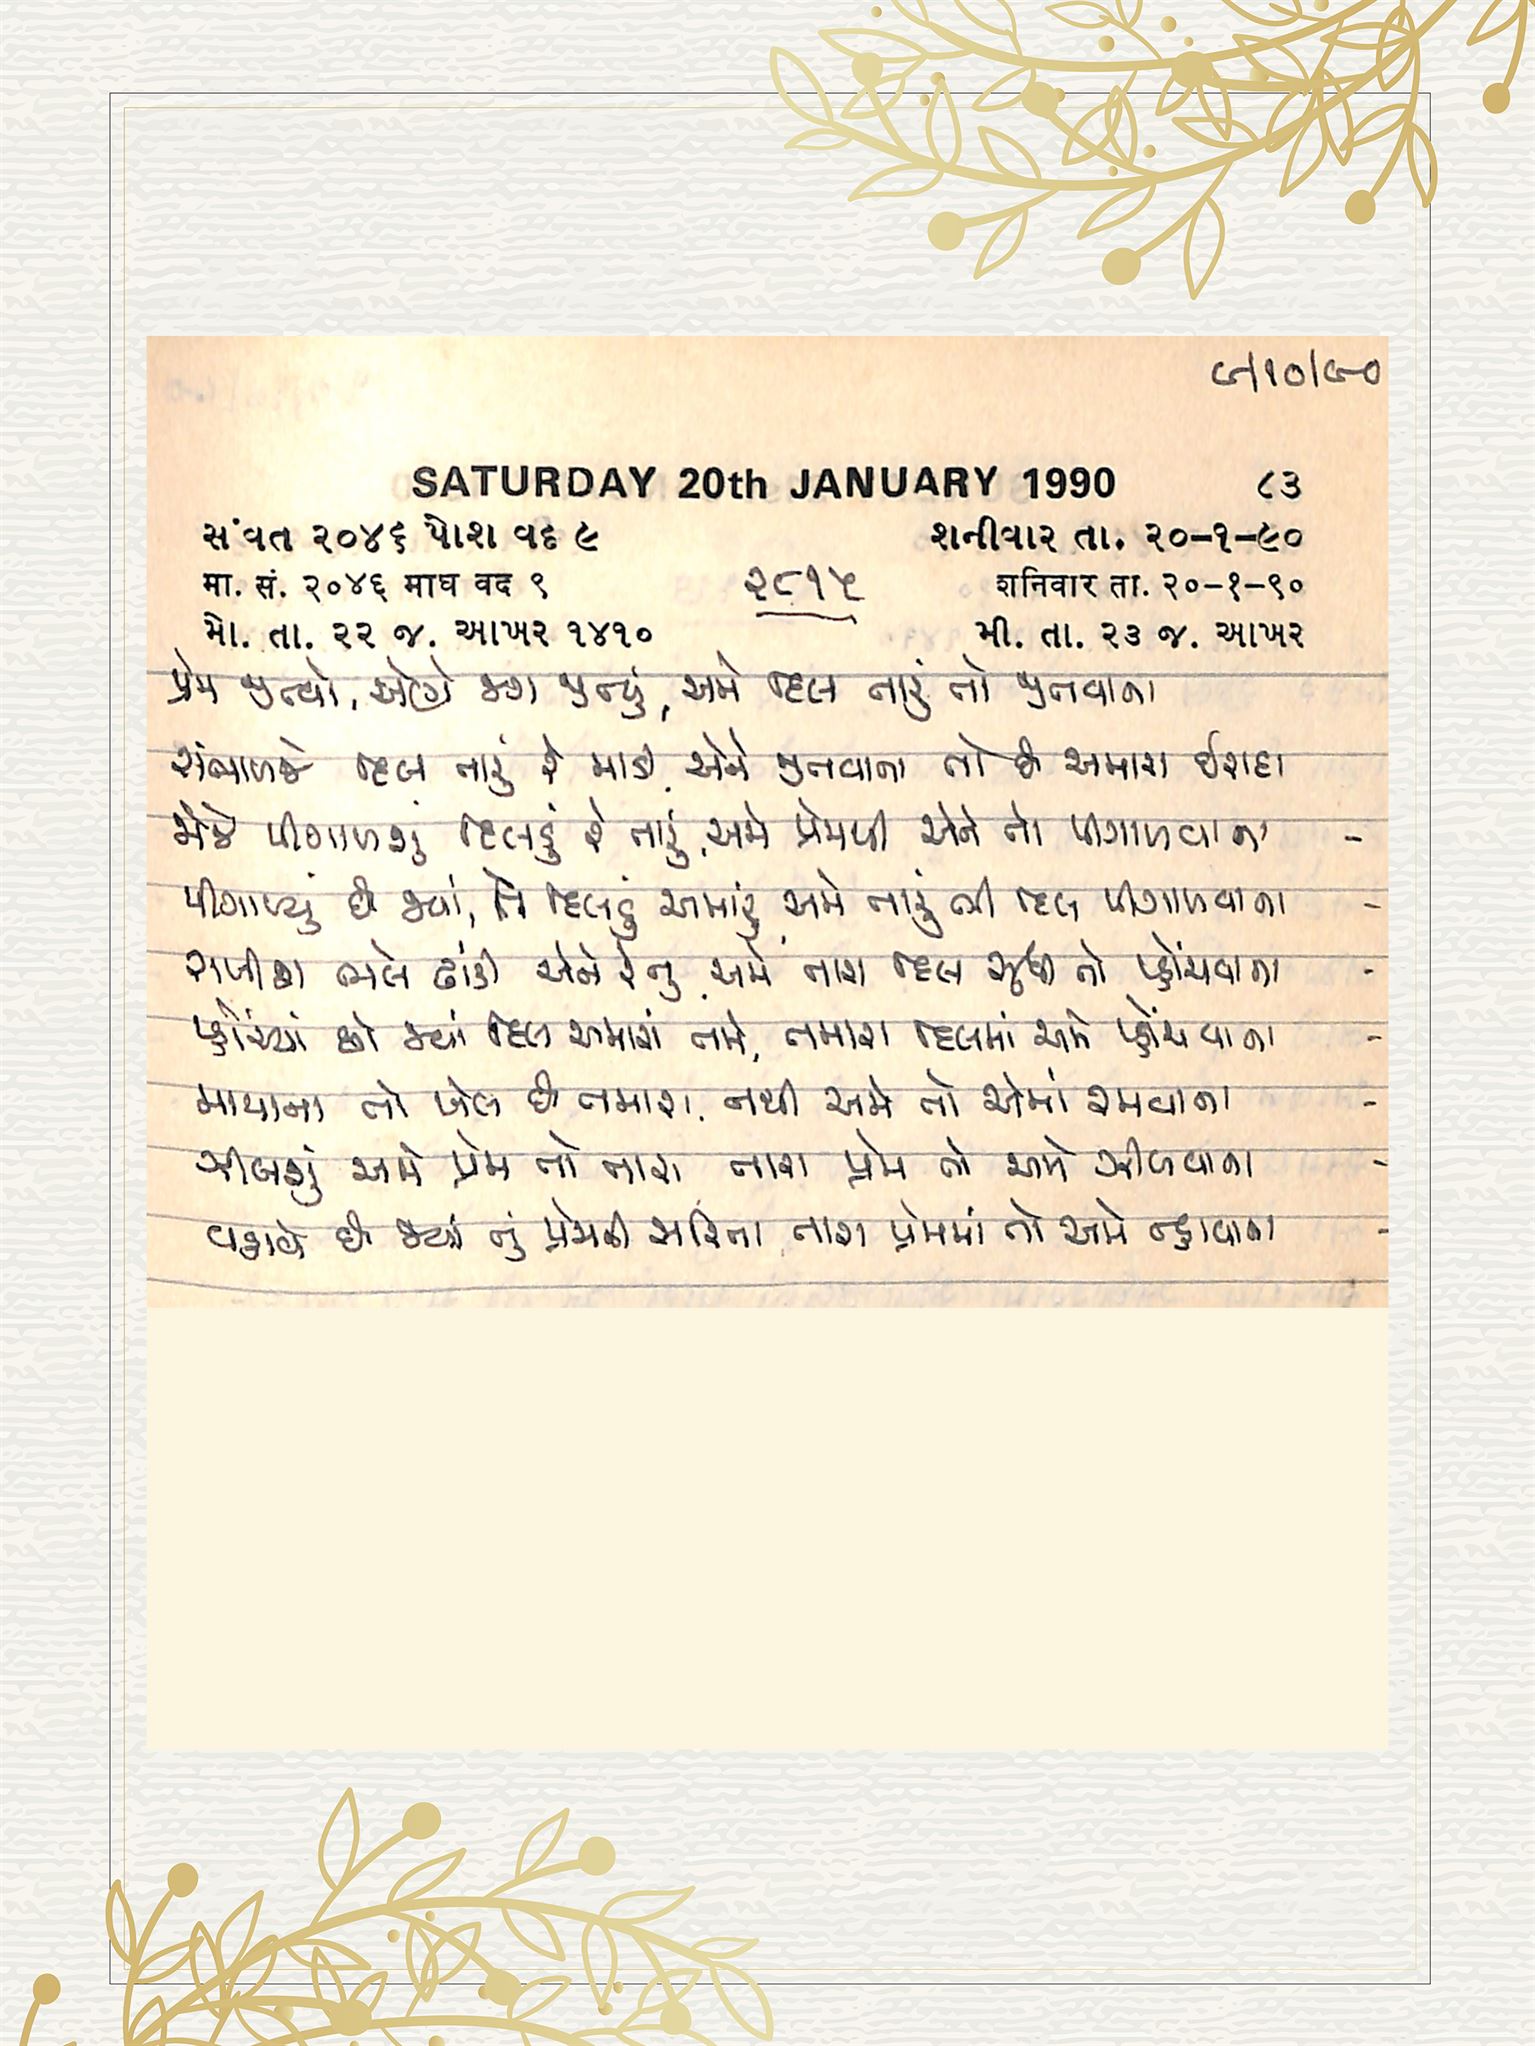 ૯/૧૦/૯૦
SATURDAY 20th JANUARY 1990 ૮૩
સંવત ૨૦૪૬ પૌશ વદ ૯ શનીવાર તા. ૨૦-૧-૯૦
मा. सं. २०४६ माघ वद ९ ૨૮૧૫ शनिवार ता. २०-१-९०
મો. તા. ૨૨ જ. આખર ૧૪૧૦ મી. તા. ૨૩ જ. આખર
પ્રેમ જીત્યો, એણે જગ જીત્યું, અમે દિલ તારું તો જીતવાના
સંભાળજે દિલ તારું રે માડી, એને જીતવાના તો છે અમારા ઈરાદા
પીગાળશું દિલડું રે તારું, અમે પ્રેમથી એને તો પીગાળવાના -
પીગાળ્યું છે જ્યાં, તેં દિલડું અમારું, અમે તારું બી દિલ પીગાળવાના -
રાખીશ ભલે ઢાંકી એને રે તુ, અમે તારા દિલ સુધી તો પ્હોંચવાના -
પ્હોંચ્યાં છો જ્યાં દિલ અમારાં તમે, તમારા દિલમાં અમે પ્હોંચવાના -
માયાના તો ખેલ છે તમારા, નથી અમે તો એમાં રમવાના -
ઝીલશું અમે પ્રેમ તો તારા તારા પ્રેમ તો અમે ઝીલવાના -
વહાવે છે જ્યાં તું પ્રેમની સરિતા, તારા પ્રેમમાં તો અમે ન્હાવાના -